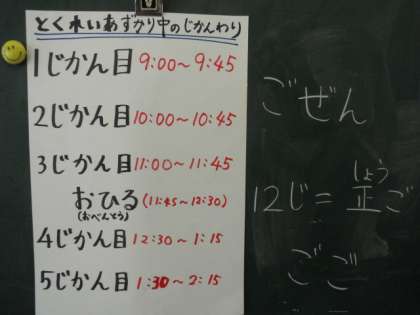 とくれいあずかり中のじかんわり
1じかん目 9:00～9:45
2じかん目 10:00～10:45
3じかん目 11:00～11:45
おひる (11:45～12:30)
(おべんとう)
4じかん目 12:30～1:15
5じかん目 1:30～2:15
ごぜん
しょう
12じ=正ご
ごご